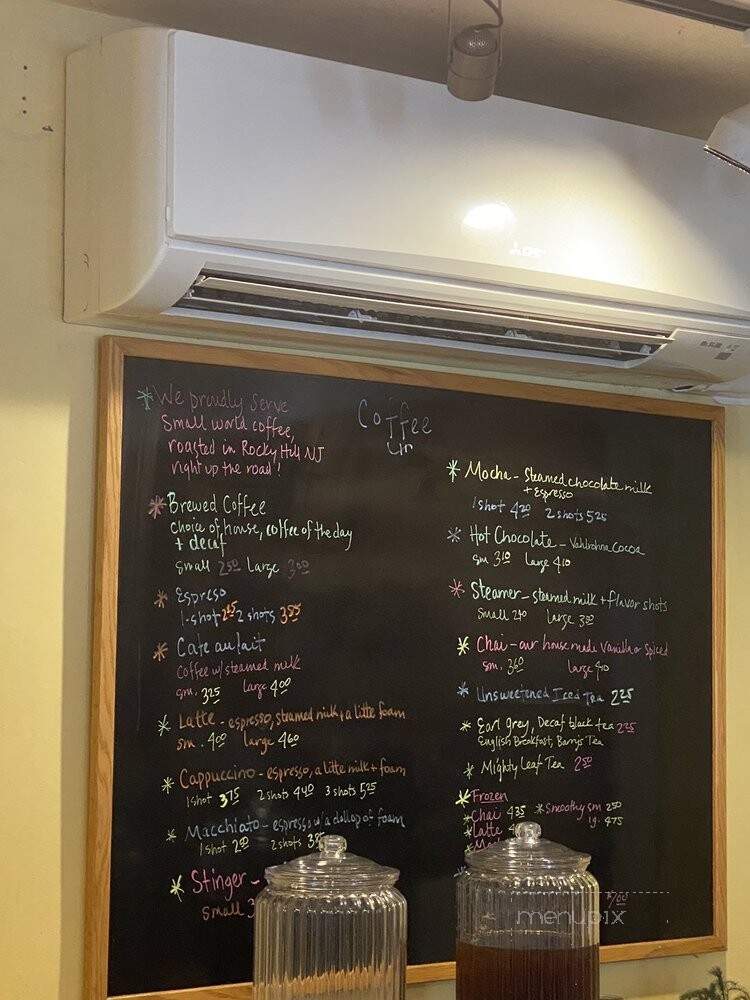 We proudly serve
Small world coffee,
roasted in Rocky Hill NJ
right up the road!
Coffee
Brewed Coffee
choice of house, coffee of the day
+ decaf
small 2.50 Large 3.00
Espreso
1-shot 2.45 2 shots 3.85
Cafe au lait
Coffee w/ steamed milk
sm. 3.25 large 4.00
Latte - espresso, steamed milk + a little foam
sm. 4.00 large 4.60
Cappuccino - espresso, a little milk + foam
1 shot 3.75 2 shots 4.40 3 shots 5.25
Macchiato - espresso w/ a dollop of foam
1 shot 2.80 2 shots
Stinger -
small 3
Mocha - Steamed chocolate milk
+ Espresso
1 shot 4.20 2 shots 5.25
Hot Chocolate - Vahlrohna cocoa
sm 3.10 large 4.10
Steamer - steamed milk + flavor shots
small 2.40 large
Chai - our house made Vanilla or spiced
sm. 3.60 large
Unsweetened Iced Tea 2.25
Earl grey, Decaf black tea 2.25
English Breakfast, Barry's Tea
Mighty Leaf Tea 2.50
Frozen
Chai 4.35 Smoothy sm 2.50
Latte lg. 4.75
menupix